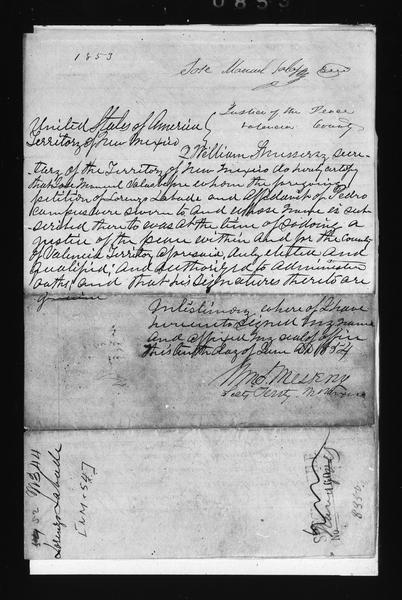 0853
1853
Jose Manuel
Justice of the Peace
Valencia County
United States of America
Territory of New Mexico
I William Messervy secre-
tary of the Territory of New Mexico do hereby certify
that Jose Manuel before whom the foregoing
petition of Lorenzo Labadie and affidavit of Pedro
were sworn to and whose name is sub-
scribed thereto was at the time of so doing a
justice of the peace within and for the County
of Valencia Territory aforesaid, duly elected and
qualified, and authorized to administer
oaths, and that his signatures thereto are
genuine
In testimony whereof I have
hereunto signed my name
and affixed my seal of office
this tenth day of June AD 1854
Wm S. Messervy
Secty Terrty N. Mexico
Lorenzo Labadie